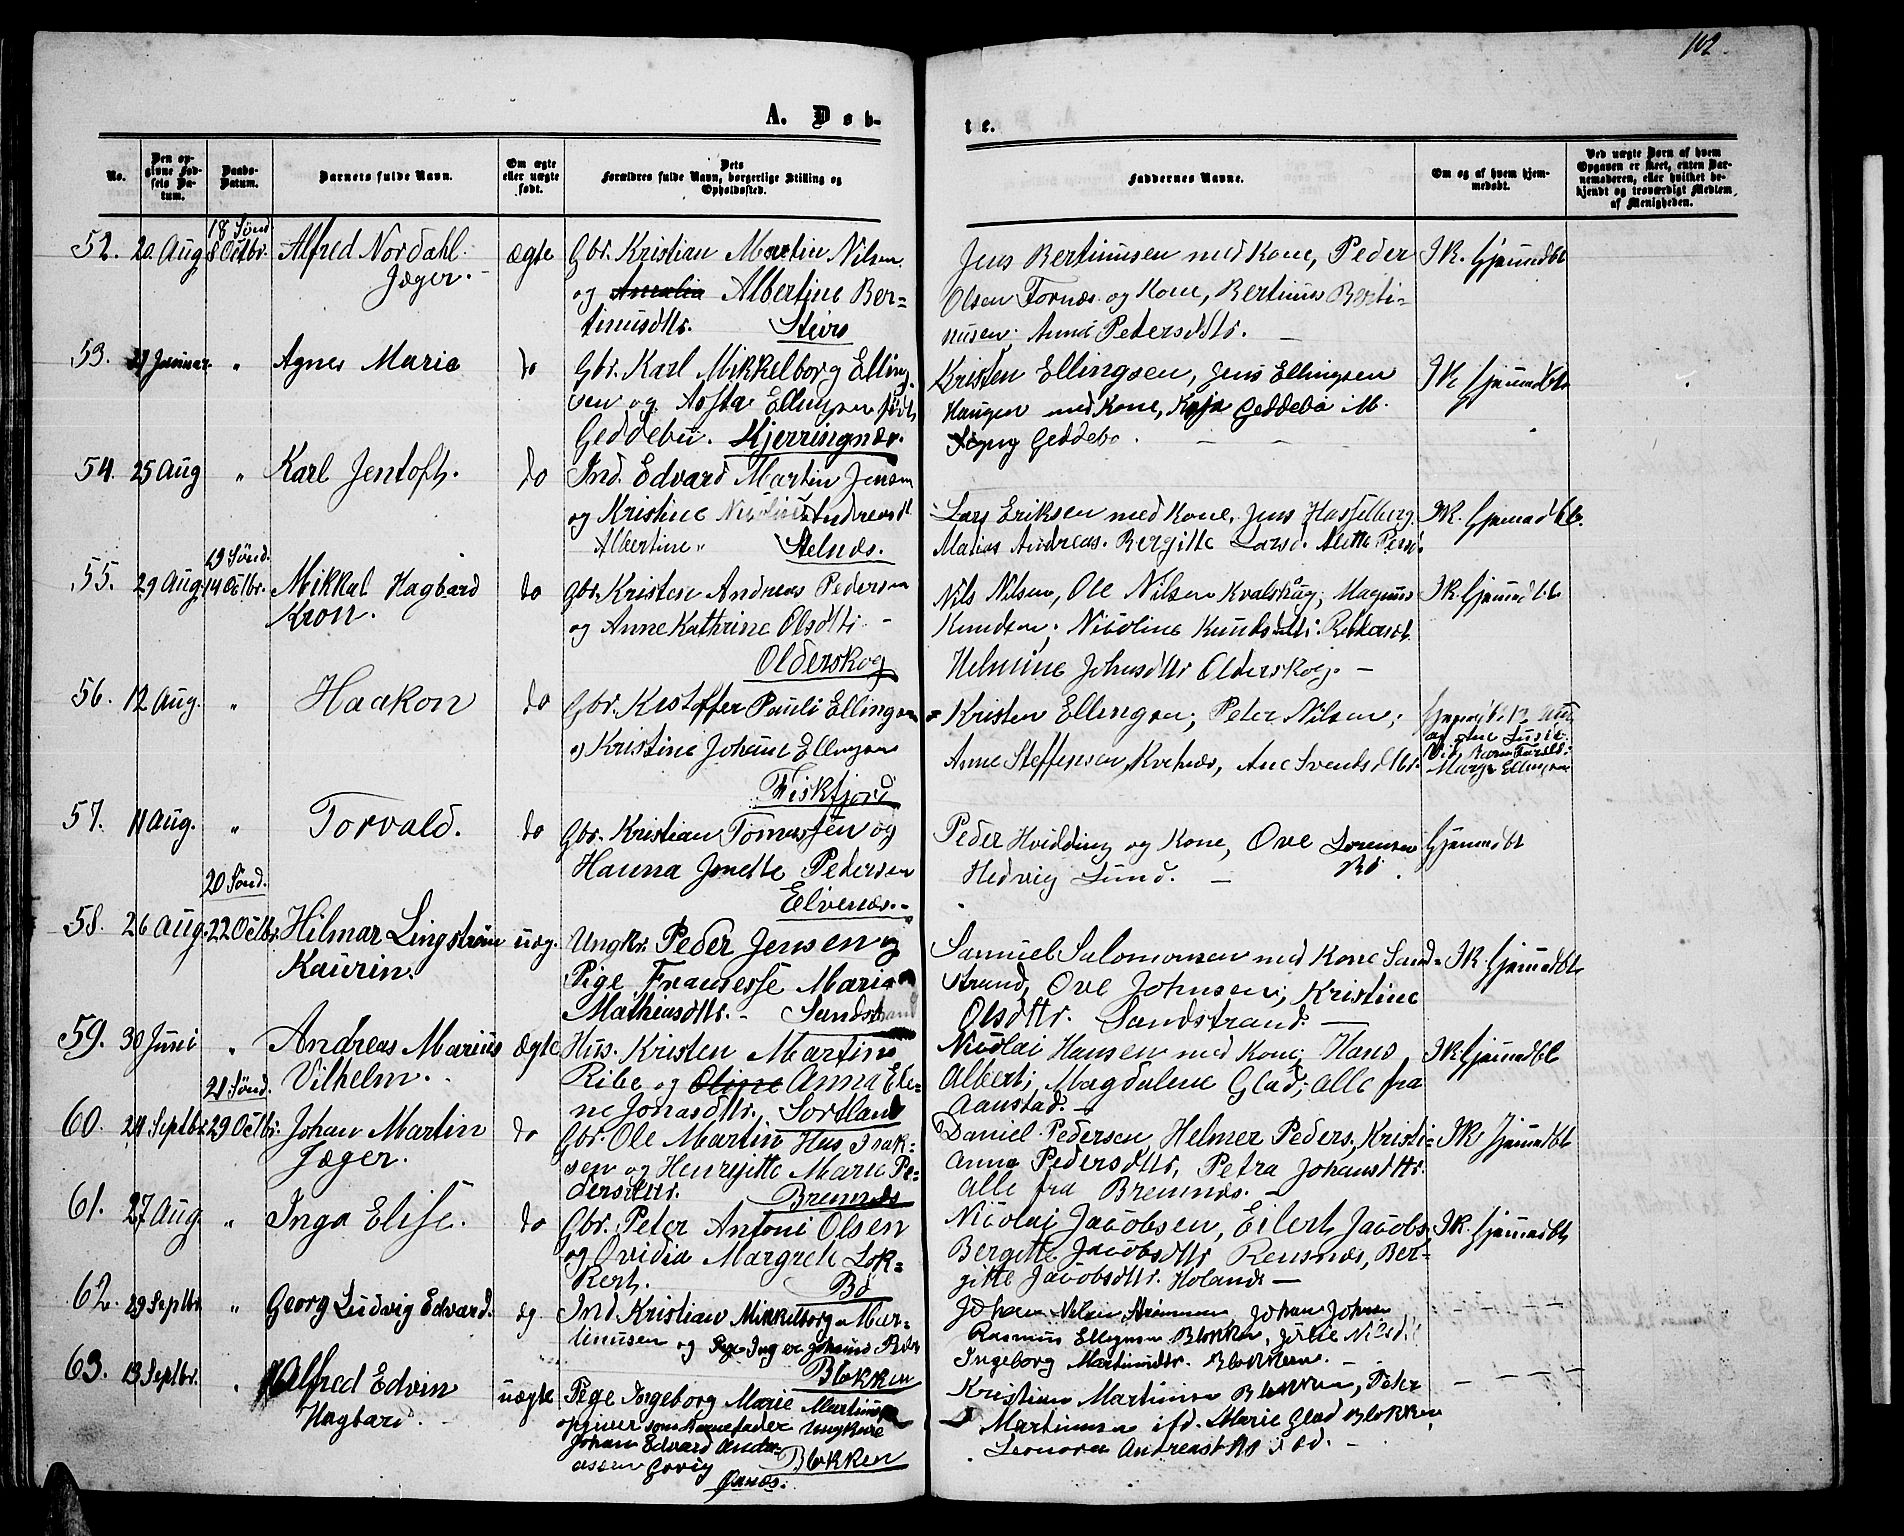 102.
A. Døb-
te.
No.
Den op-
givne Fød-
sels Da-
tum.
Daabs-
Datum.
Barnets fulde Navn.
Om ægte
eller uægte
født.
Dets
Forældres fulde Navn, borgerlige Stilling og
Opholdssted.
Faddernes Navne.
Om og af hvem hjem-
medøbt.
Ved uægte Børn af hvem
Opgaven er skeet, enten Bar-
nemoderen, eller hvilket be-
kjendt og troværdigt Medlem
af Menigheden.
18 Sønd
52. 20 Aug 8 Octbr. Alfred Nordahl
Jæger.
ægte
Gbr. Kristian Martin Nilsen
og Amalia Albertine Ber-
tinusdtr. Steiro
Jens Bertinusen med Kone, Peder
Olsen Fornæs og Kone, Bertinus Berti-
nusen; Anne Petersdtr.
IK. hjemmdbt
53. Januar. " Agnes Marie
do
Gbr. Karl Mikkelborg Elling
sen og Asta Ellingsen født
Geddebø. Kjerringnæs.
Kristen Ellingsen, Jens Ellingsen
Haugen med Kone, Kaja Geddebø M.
Signy Geddebø.
IK hjemmdbt
54. 25 Aug " Karl Jentoft.
do
Ind. Edvard Martin Jensen
og Kristine Andreasdt
Albertine " Stelnæs.
Lars Eriksen med Kone, Jens Hasselberg
Matias Andreas. Bergitte Larsd. Alette
IK. hjemmdbt.
19 Sønd.
55. 29 Aug. 14 Octbr. Mikkal Hagbard
Kron.
do
Gbr. Kristen Andreas Pedersen
og Anne Kathrine Olsdtr.
Olderskog
Nils Nilsen, Ole Nilsen Kvalskog; Magnus
Knudsen; Nicoline Knudsdtr.
Helmine Johnsdtr Olderskog.
IK. hjemmdbt
56. 12 Aug. " Haakon
do
Gbr. Kristoffer Pauli Ellingsen
og Kristine Johane Ellingsen
Fiskfjord
Kristen Ellingsen; Peter Nilsen;
Anne Steffensen, Kvitnæs, Ane Svendsdtr.
hjemmdbt. 12 Aug
Ellingsen
57. 11 Aug. " Torvald.
do
Gbr. Kristian Tomassen og
Hanna Jonette Pedersen
Elvenæs.
Peder Hvidding og Kone, Ove Lorensen
Hedvig Lund. Bø.
hjemmdbt
20 Sønd.
58. 26 Aug. 22 Octbr. Hilmar Lingstrøm
Kaurin.
uæg.
Ungkr. Peder Jensen og
Pige Fransesse Maria
Mathiasdtr. Sandstrand
Samuel Salomonsen med Kone Sand-
strand, Ove Johnsen; Kristine
Olsdtr. Sandstrand.
IK. hjemmdbt
59. 30 Juni " Andreas Marius
Vilhelm.
ægte
Hus. Kristen Martin
Ribe og Oline Anna Ele-
ne Jonasdtr. Sortland
Nicolai Hansen med Kone; Hans
Albert; Magdalene Glad; alle fra
Aanstad.
IK hjemmdbt
21 Sønd.
60. 24 Septbr. 29 Octbr. Johan Martin
Jæger.
do
Gbr. Ole Martin Hus. Isak-
sen og Henrijitte Marie Pe-
dersdtr. Bremnæs
Daniel Pedersen, Helmer Peders, Kristi-
Anna Pedersdtr, Petra Johansdtr.
alle fra Bremnæs.
IK hjemmdbt
61. 27 Aug. " Inga Elise.
do
Gbr. Peter Antoni Olsen
og Ovidia Margrete Lok-
kert. Bø
Nicolai Jacobsen, Eilert Jacobs,
Bergitte Jacobsdtr Rensnæs, Ber-
gitte Jacobsdtr. Holand
IK. hjemmdbt
62. 29 Septbr " Georg Ludvig Edvard.
æg
Ind Kristian Mikkelborg Mar-
tinusen og Pige
Blokken
Johan Nilsen Strømmen Johan Johnsen
Rasmus Ellingsen Blokken, Julie Nilsd.
Ingeborg Martinusdtr. Blokken.
63. 13 Septbr. " Alfred Edvin
Hagbard.
uægte
Pige Ingeborg Marie Martinus
opgiver som Barnefader Ungkar
Johan Edvard Andre-
assen Govig Blokken
Kristian Martinusen Blokken, Peter
Martinusen ifd. Marie Glad Blokken
Leonora Andreasd.